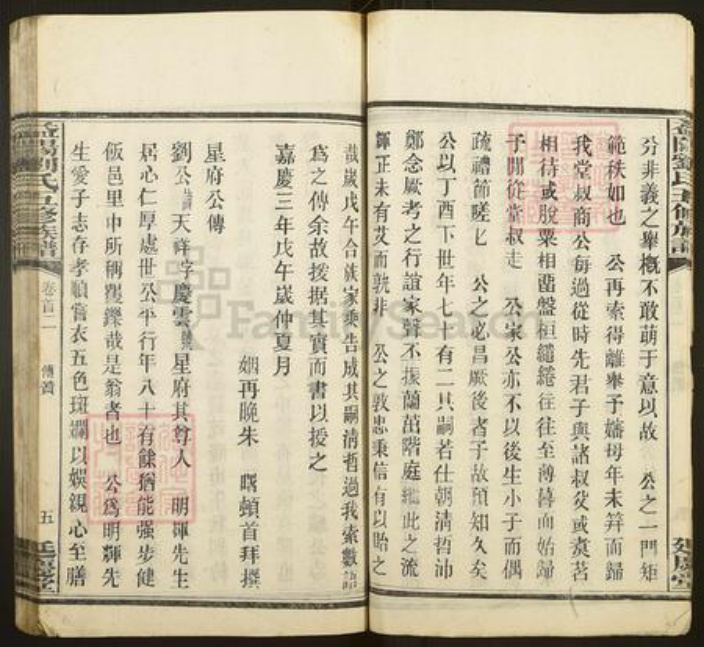 分非義之舉概不敢萌于意以故　公之一門矩
範秩如也　公再索得離舉予嬸母年未笄而歸
我堂叔商公每過從時先君子與諸叔父或煑茗
相待或脫粟相
盤桓繾綣往往至薄暮而始歸
予間從堂叔走　公家公亦不以後生小子而偶
疏禮節嗟乎　公之必昌厥後者予故預知久矣
公以丁酉下世年七十有二其嗣若仕朝清哲沛
鄭念厥考之行誼家聲不振蘭茁階庭繼此之流
輝正未有艾而孰非　公之敦忠秉信有以貽之
哉歲戊午合族家乘告成其嗣清哲過我索數語
爲之傳余故援据其實而書以授之
嘉慶三年戊午歲仲夏月
姻再晚朱　曙頓首拜撰
星府公傳
劉公諱天祥字慶雲號星府其尊人　明煇先生
居心仁厚處世公平行年八十有餘猶能强步健
飯邑里中所稱矍鑠哉是翁者也　公爲明輝先
生愛子志存孝順嘗衣五色斑斕以娛親心至膳
益陽劉氏五修族譜
卷首二
傳贊
五
延慶堂
益陽劉氏五修族譜
延慶堂
FamilySearch